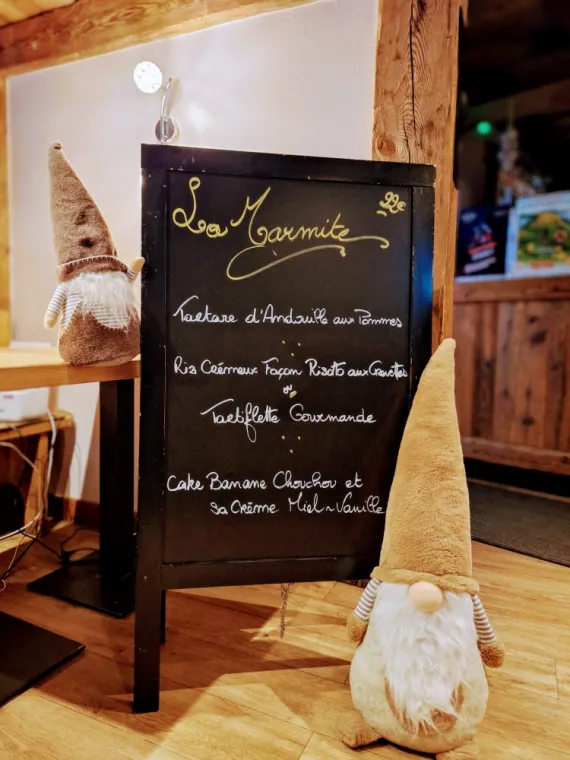 La Marmite 22€
Tartare d'Andouille aux Pommes
Ris Crémeux Façon Risoto aux Crevettes
ou
Tartiflette Gourmande
Cake Banane Chouchou et
sa Crème Miel~Vanille